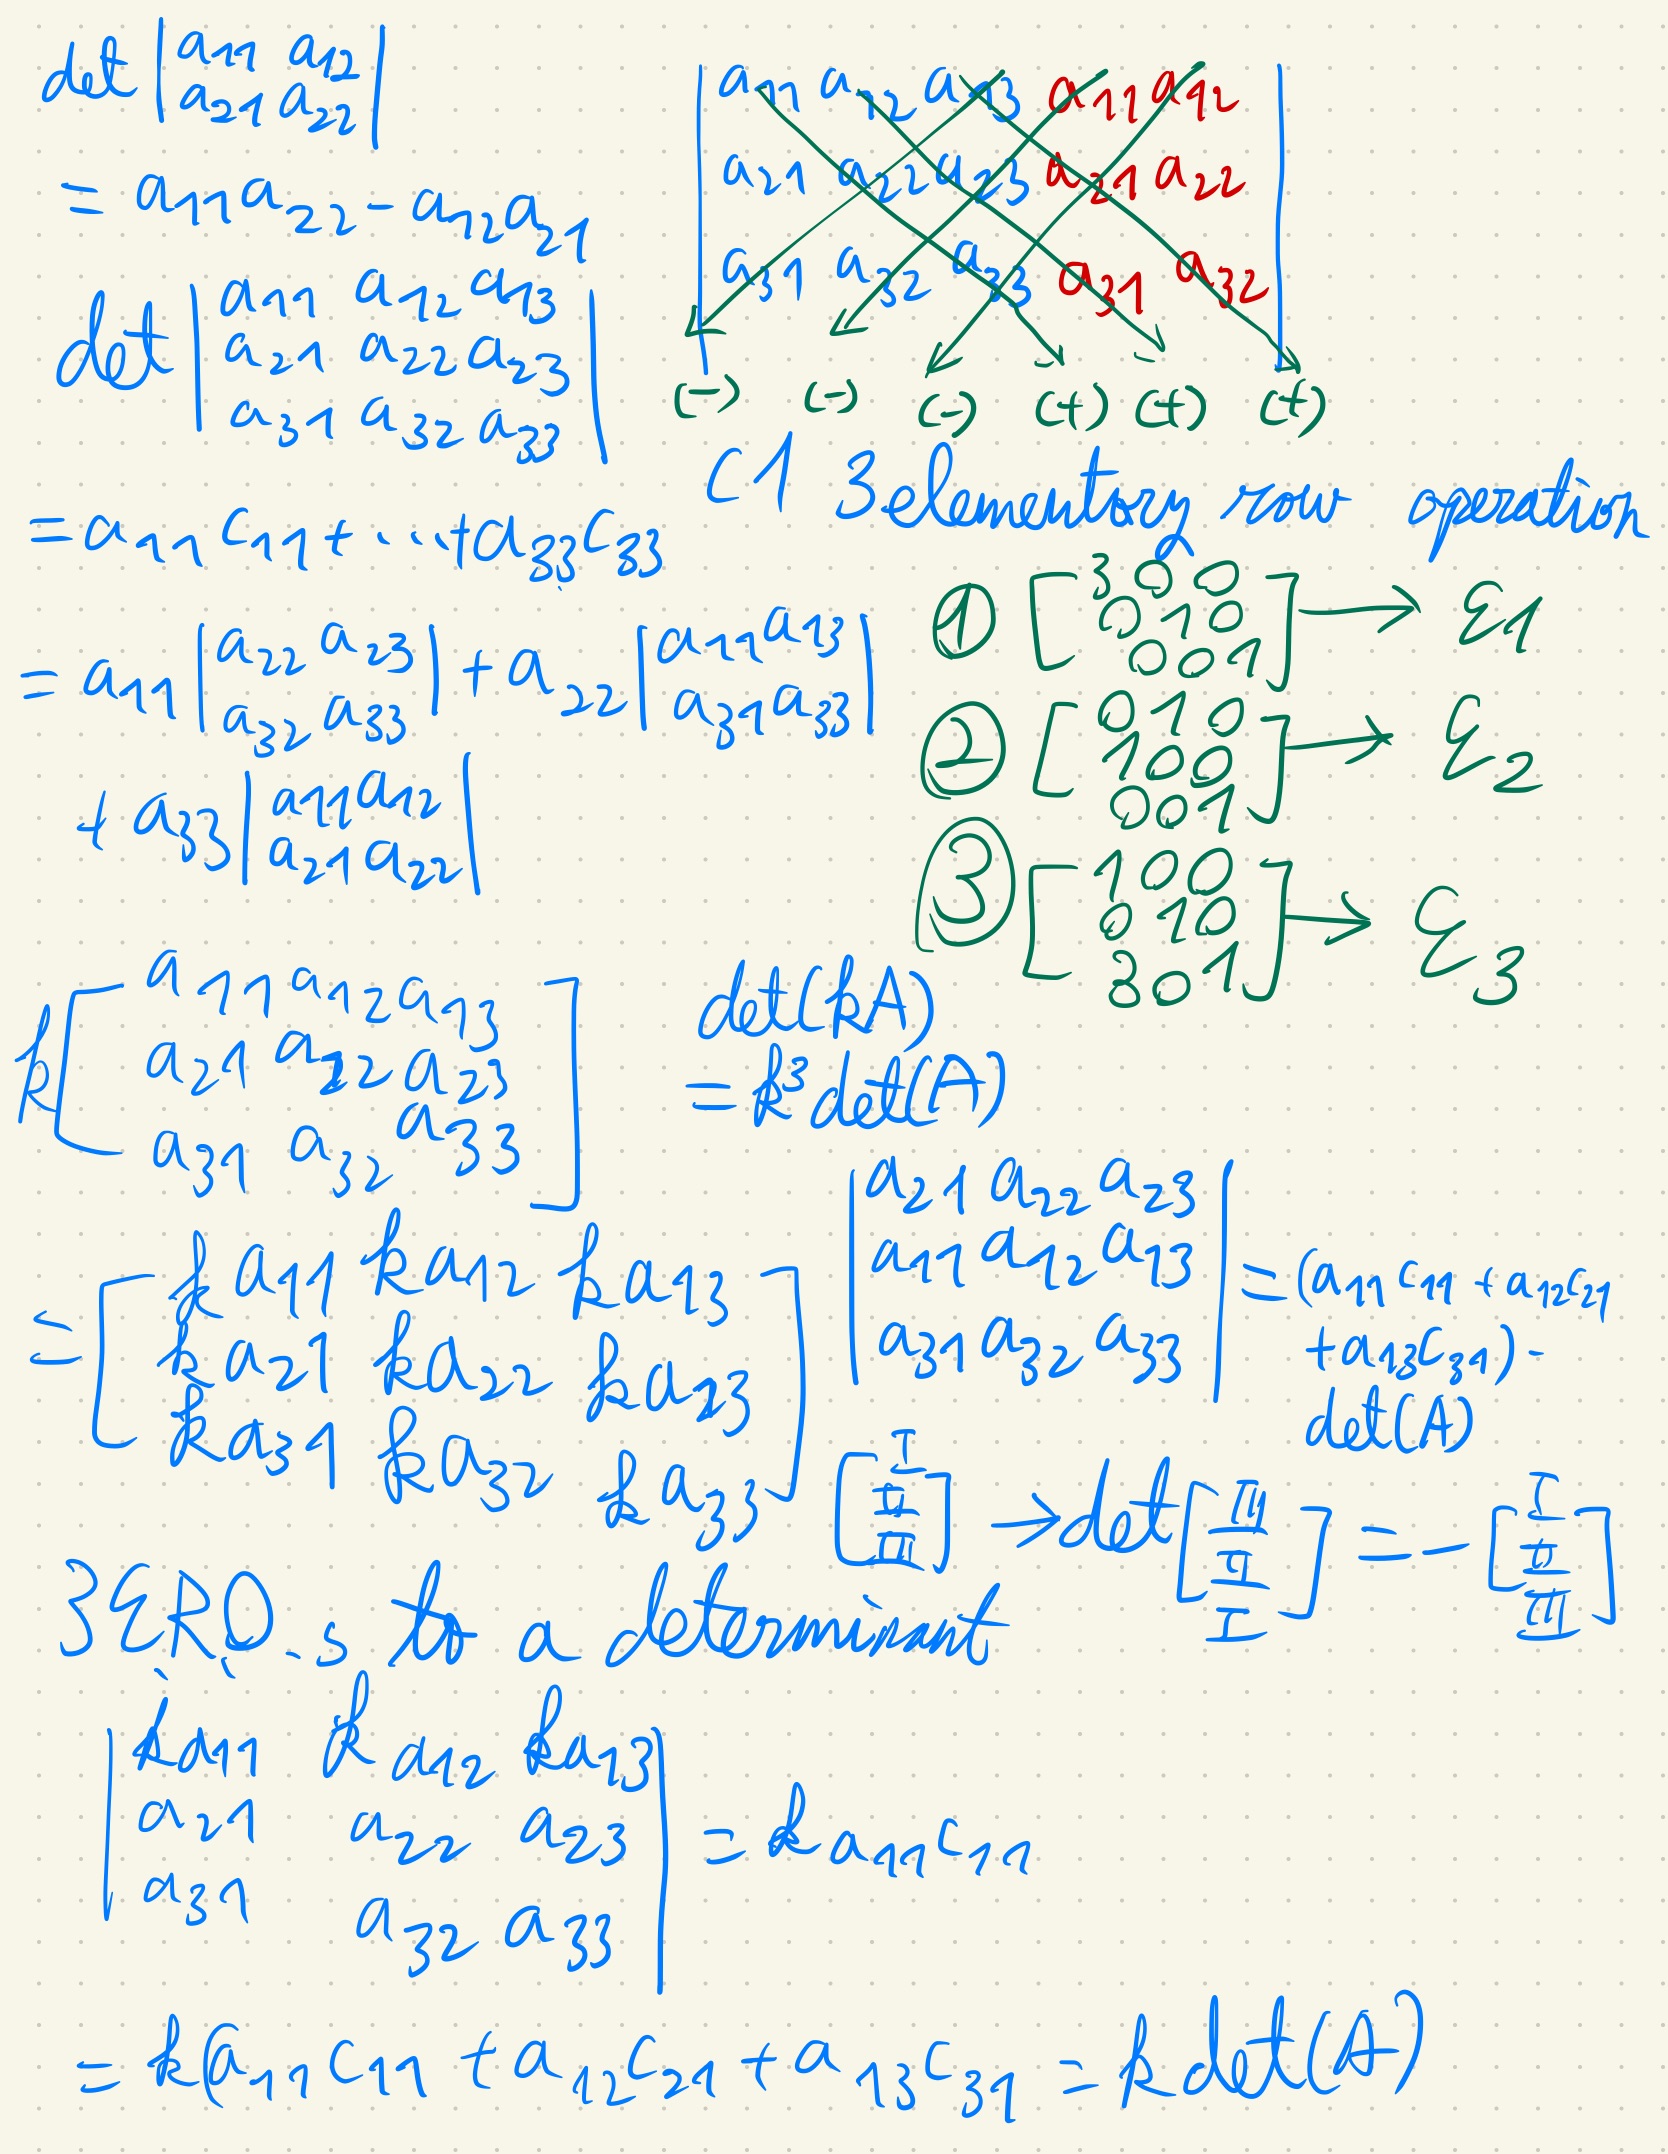 det | a11 a12 |
| a21 a22 |
= a11a22 - a12a21
det | a11 a12 a13 |
| a21 a22 a23 |
| a31 a32 a33 |
= a11 c11 + ... + a33c33
= a11 | a22 a23 | + a22 | a11 a13 |
| a32 a33 | | a31 a33 |
+ a33 | a11 a12 |
| a21 a22 |
| a11 a12 a13 a11 a12 |
| a21 a22 a23 a21 a22 |
| a31 a32 a33 a31 a32 |
(-) (-) (-) (+) (+) (+)
C1 3 elementory row operation
① [ 3 0 0
0 1 0
0 0 1 ] → ε1
② [ 0 1 0
1 0 0
0 0 1 ] → ε2
③ [ 1 0 0
0 1 0
3 0 1 ] → ε3
k [ a11 a12 a13
a21 a22 a23
a31 a32 a33 ]
= [ ka11 ka12 ka13
ka21 ka22 ka23
ka31 ka32 ka33 ]
det(kA)
= k³ det(A)
| a21 a22 a23 |
| a11 a12 a13 | = (a11 c11 + a12c21
| a31 a32 a33 | + a13c31) -
det(A)
[ I
II
III ] → det [ III
II
I ] = - [ I
II
III ]
3 ERO.s to a determinant
| ka11 ka12 ka13 |
| a21 a22 a23 | = ka11c11
| a31 a32 a33 |
= k(a11c11 + a12c21 + a13c31 = k det(A)